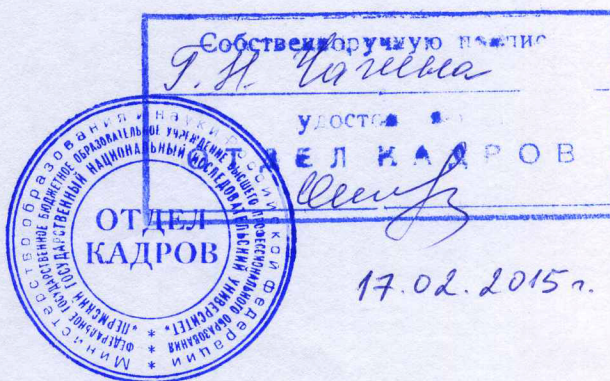 Собственноручную подпис
Г.Н. Чагина
удостов
ОТДЕЛ КАДРОВ
17.02.2015 г.
Министерство образования и науки Российской Федерации
ФЕДЕРАЛЬНОЕ ГОСУДАРСТВЕННОЕ БЮДЖЕТНОЕ ОБРАЗОВАТЕЛЬНОЕ УЧРЕЖДЕНИЕ ВЫСШЕГО ПРОФЕССИОНАЛЬНОГО ОБРАЗОВАНИЯ
"ПЕРМСКИЙ ГОСУДАРСТВЕННЫЙ НАЦИОНАЛЬНЫЙ ИССЛЕДОВАТЕЛЬСКИЙ УНИВЕРСИТЕТ"
ОТДЕЛ
КАДРОВ